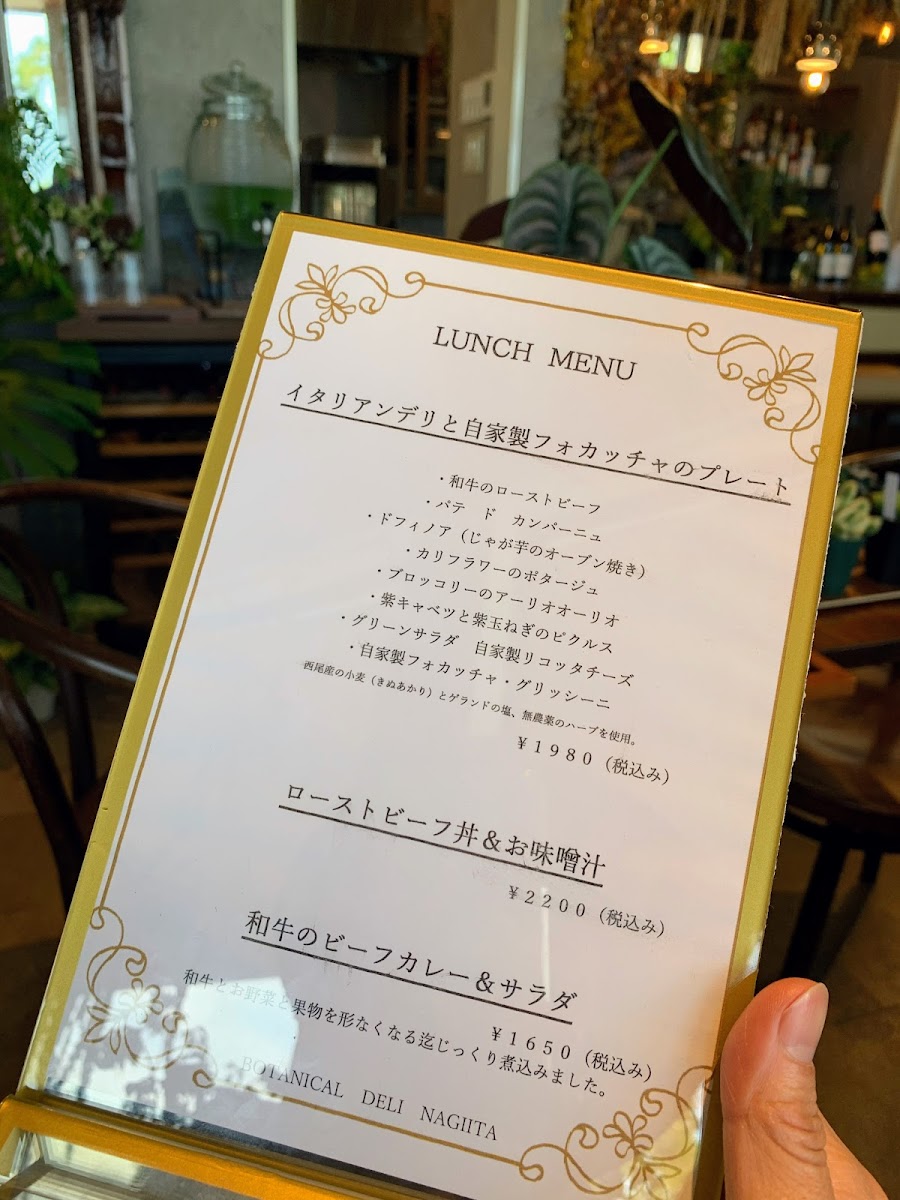 LUNCH MENU
イタリアンデリと自家製フォカッチャのプレート
・和牛のローストビーフ
・パテ ド カンパーニュ
・ドフィノア（じゃが芋のオーブン焼き）
・カリフラワーのポタージュ
・ブロッコリーのアーリオオーリオ
・紫キャベツと紫玉ねぎのピクルス
・グリーンサラダ 自家製リコッタチーズ
・自家製フォカッチャ・グリッシーニ
西尾産の小麦（きぬあかり）とゲランドの塩、無農薬のハーブを使用。
￥1980（税込み）
ローストビーフ丼＆お味噌汁
￥2200（税込み）
和牛のビーフカレー＆サラダ
￥1650（税込み）
和牛とお野菜と果物を形なくなる迄じっくり煮込みました。
BOTANICAL DELI NAGIITA